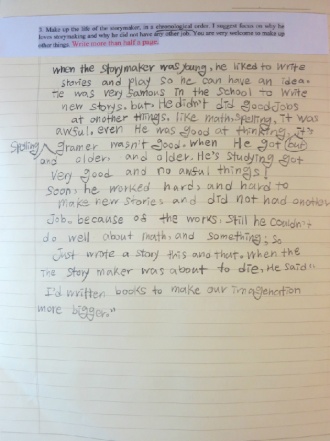 3. Make up the life of the storymaker, in a chronological order. I suggest focus on why he
loves storymaking and why he did not have any other job. You are very welcome to make up
other things. Write more than half a page.
when the storymaker was young, he liked to write
stories and play so he can have an idea.
He was very famous in the school to write
new storys. but. He didn't did good Jobs
at another things. like math. spelling. it was
awful. even He was good at thinking. it's
Spelling gramer wasn't good. when He got but
and older. and older. He's studying got
very good and no awful things!
Soon, he worked hard, and hard to
make new stories and did not had another
Job. because of the works. still he couldn't
do well about math. and something; so
Just wrote a story this and that. When the
The story maker was about to die, He said"
I'd written books to make our imagenation
more bigger."